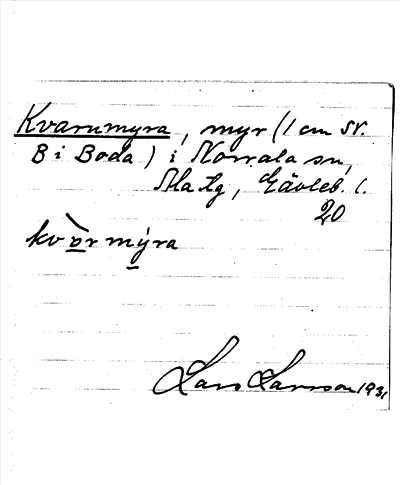 Kvarnmyra, myr (1 cm sv.
B i Boda) i Norrala sn,
Ala hg, Gävleb. l.
20
kvòrmýra
Lars Larsson 1931